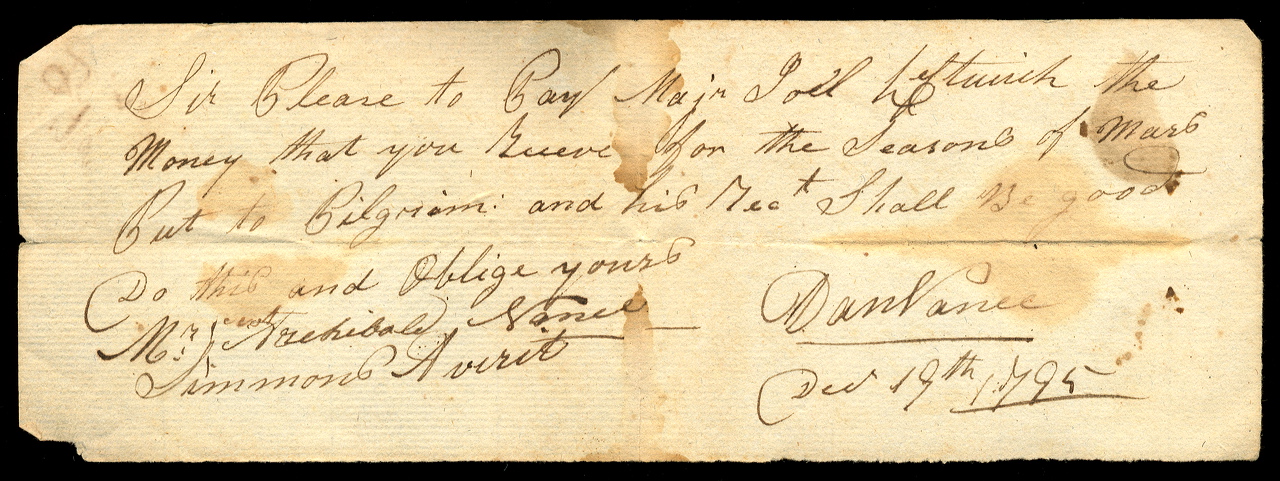 Sir Please to Pay Majr Joel Leftwich the
Money that you Receve for the Seasons of Mars
Put to Pilgrim: and his Rect Shall Be good
Do this and Oblige yours
Mr. Archibald Nance Dan Nance
Simmons Averit Decr 19th 1795